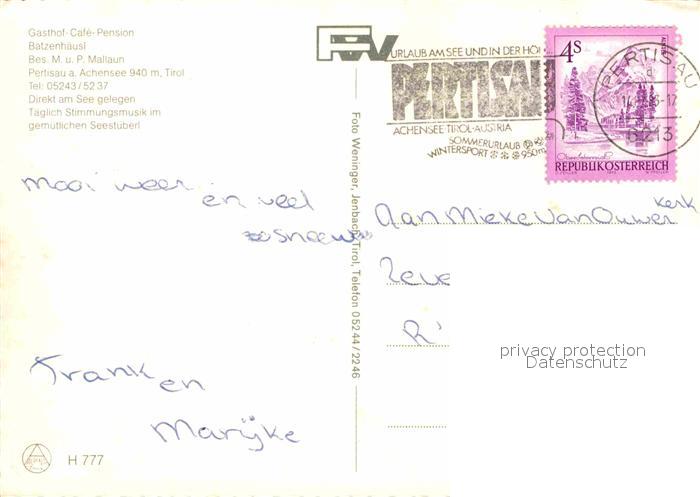 Gasthof-Café-Pension
Batzenhäusl
Bes. M. u. P. Mallaun
Pertisau a. Achensee 940 m, Tirol
Tel: 05243/5237
Direkt am See gelegen
Täglich Stimmungsmusik im
gemütlichen Seestüberl
URLAUB AM SEE UND IN DER HÖ
PERTISAU
ACHENSEE·TIROL·AUSTRIA
SOMMERURLAUB
WINTERSPORT 950m
4S
REPUBLIK ÖSTERREICH
PERTISAU
6213
Foto Weninger, Jenbach, Tirol, Telefon 05244/2246
mooi weer
en veel
sneeuw
Frank
en
Marijke
Aan Mieke van Ouwer
kerk
Zeve
R
privacy protection
Datenschutz
H 777